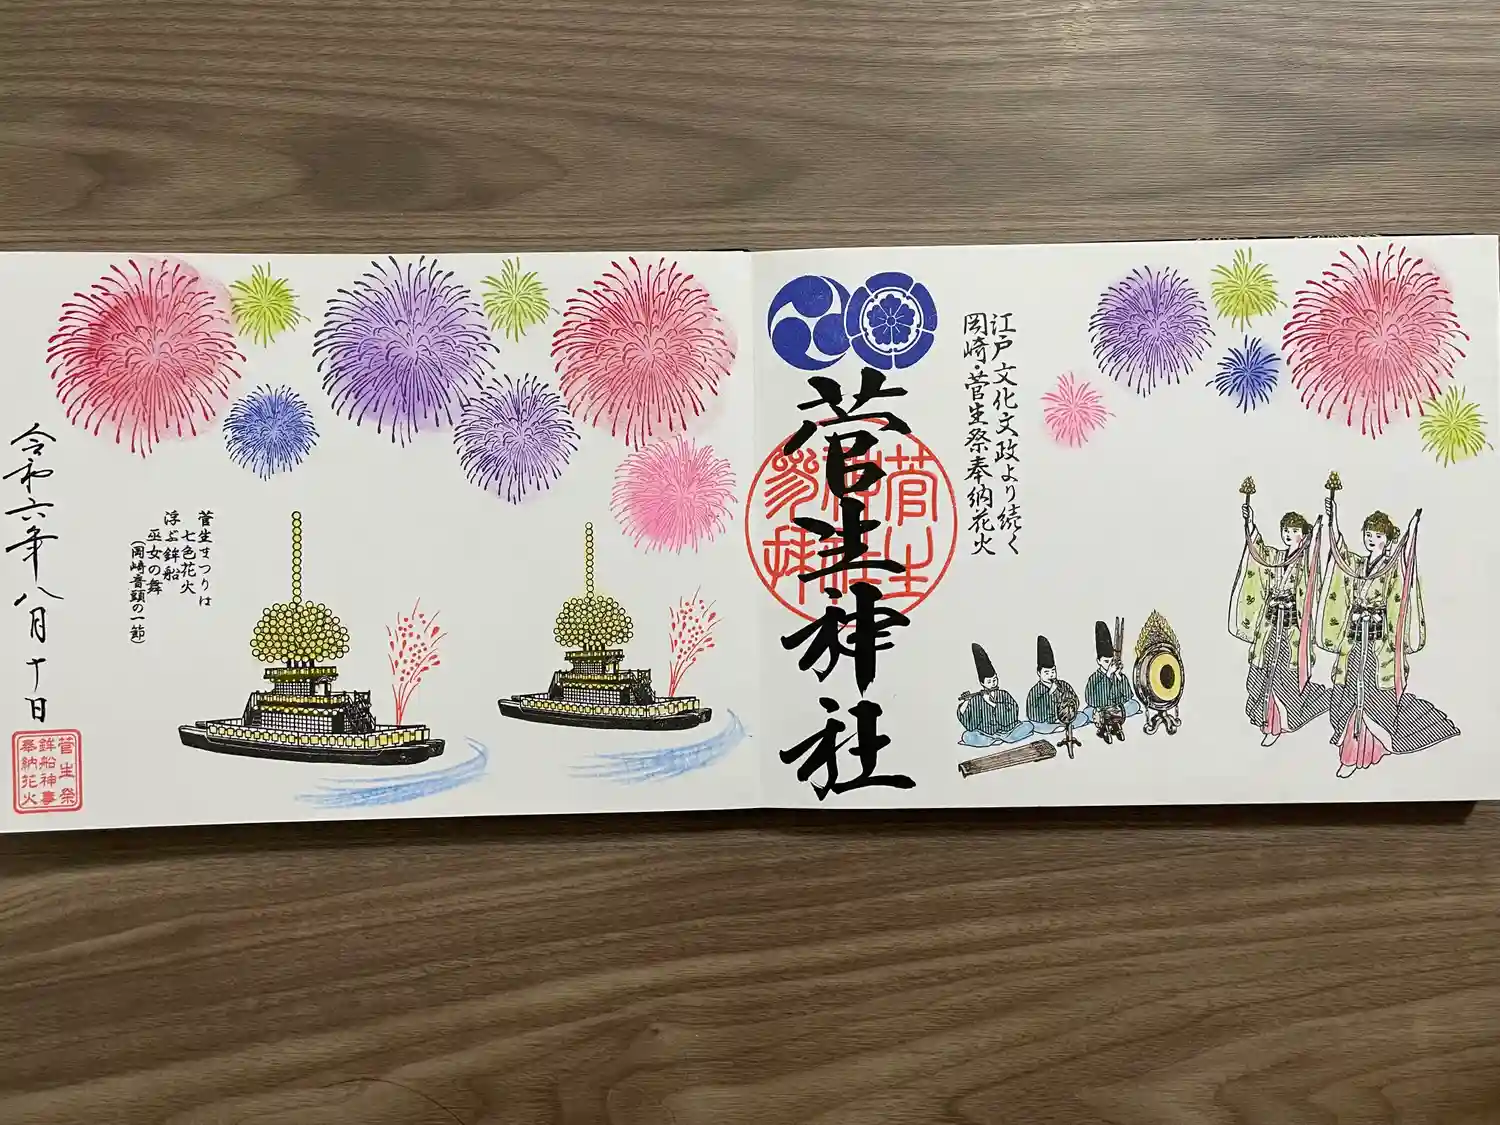 江戸文化文政より続く
岡崎・菅生祭奉納花火
菅生神社
菅生
神社
参拝
菅生まつりは
七色花火
浮ぶ鉾船
巫女の舞
(岡崎音頭の一節)
令和六年八月十日
菅生祭
鉾船神事
奉納花火